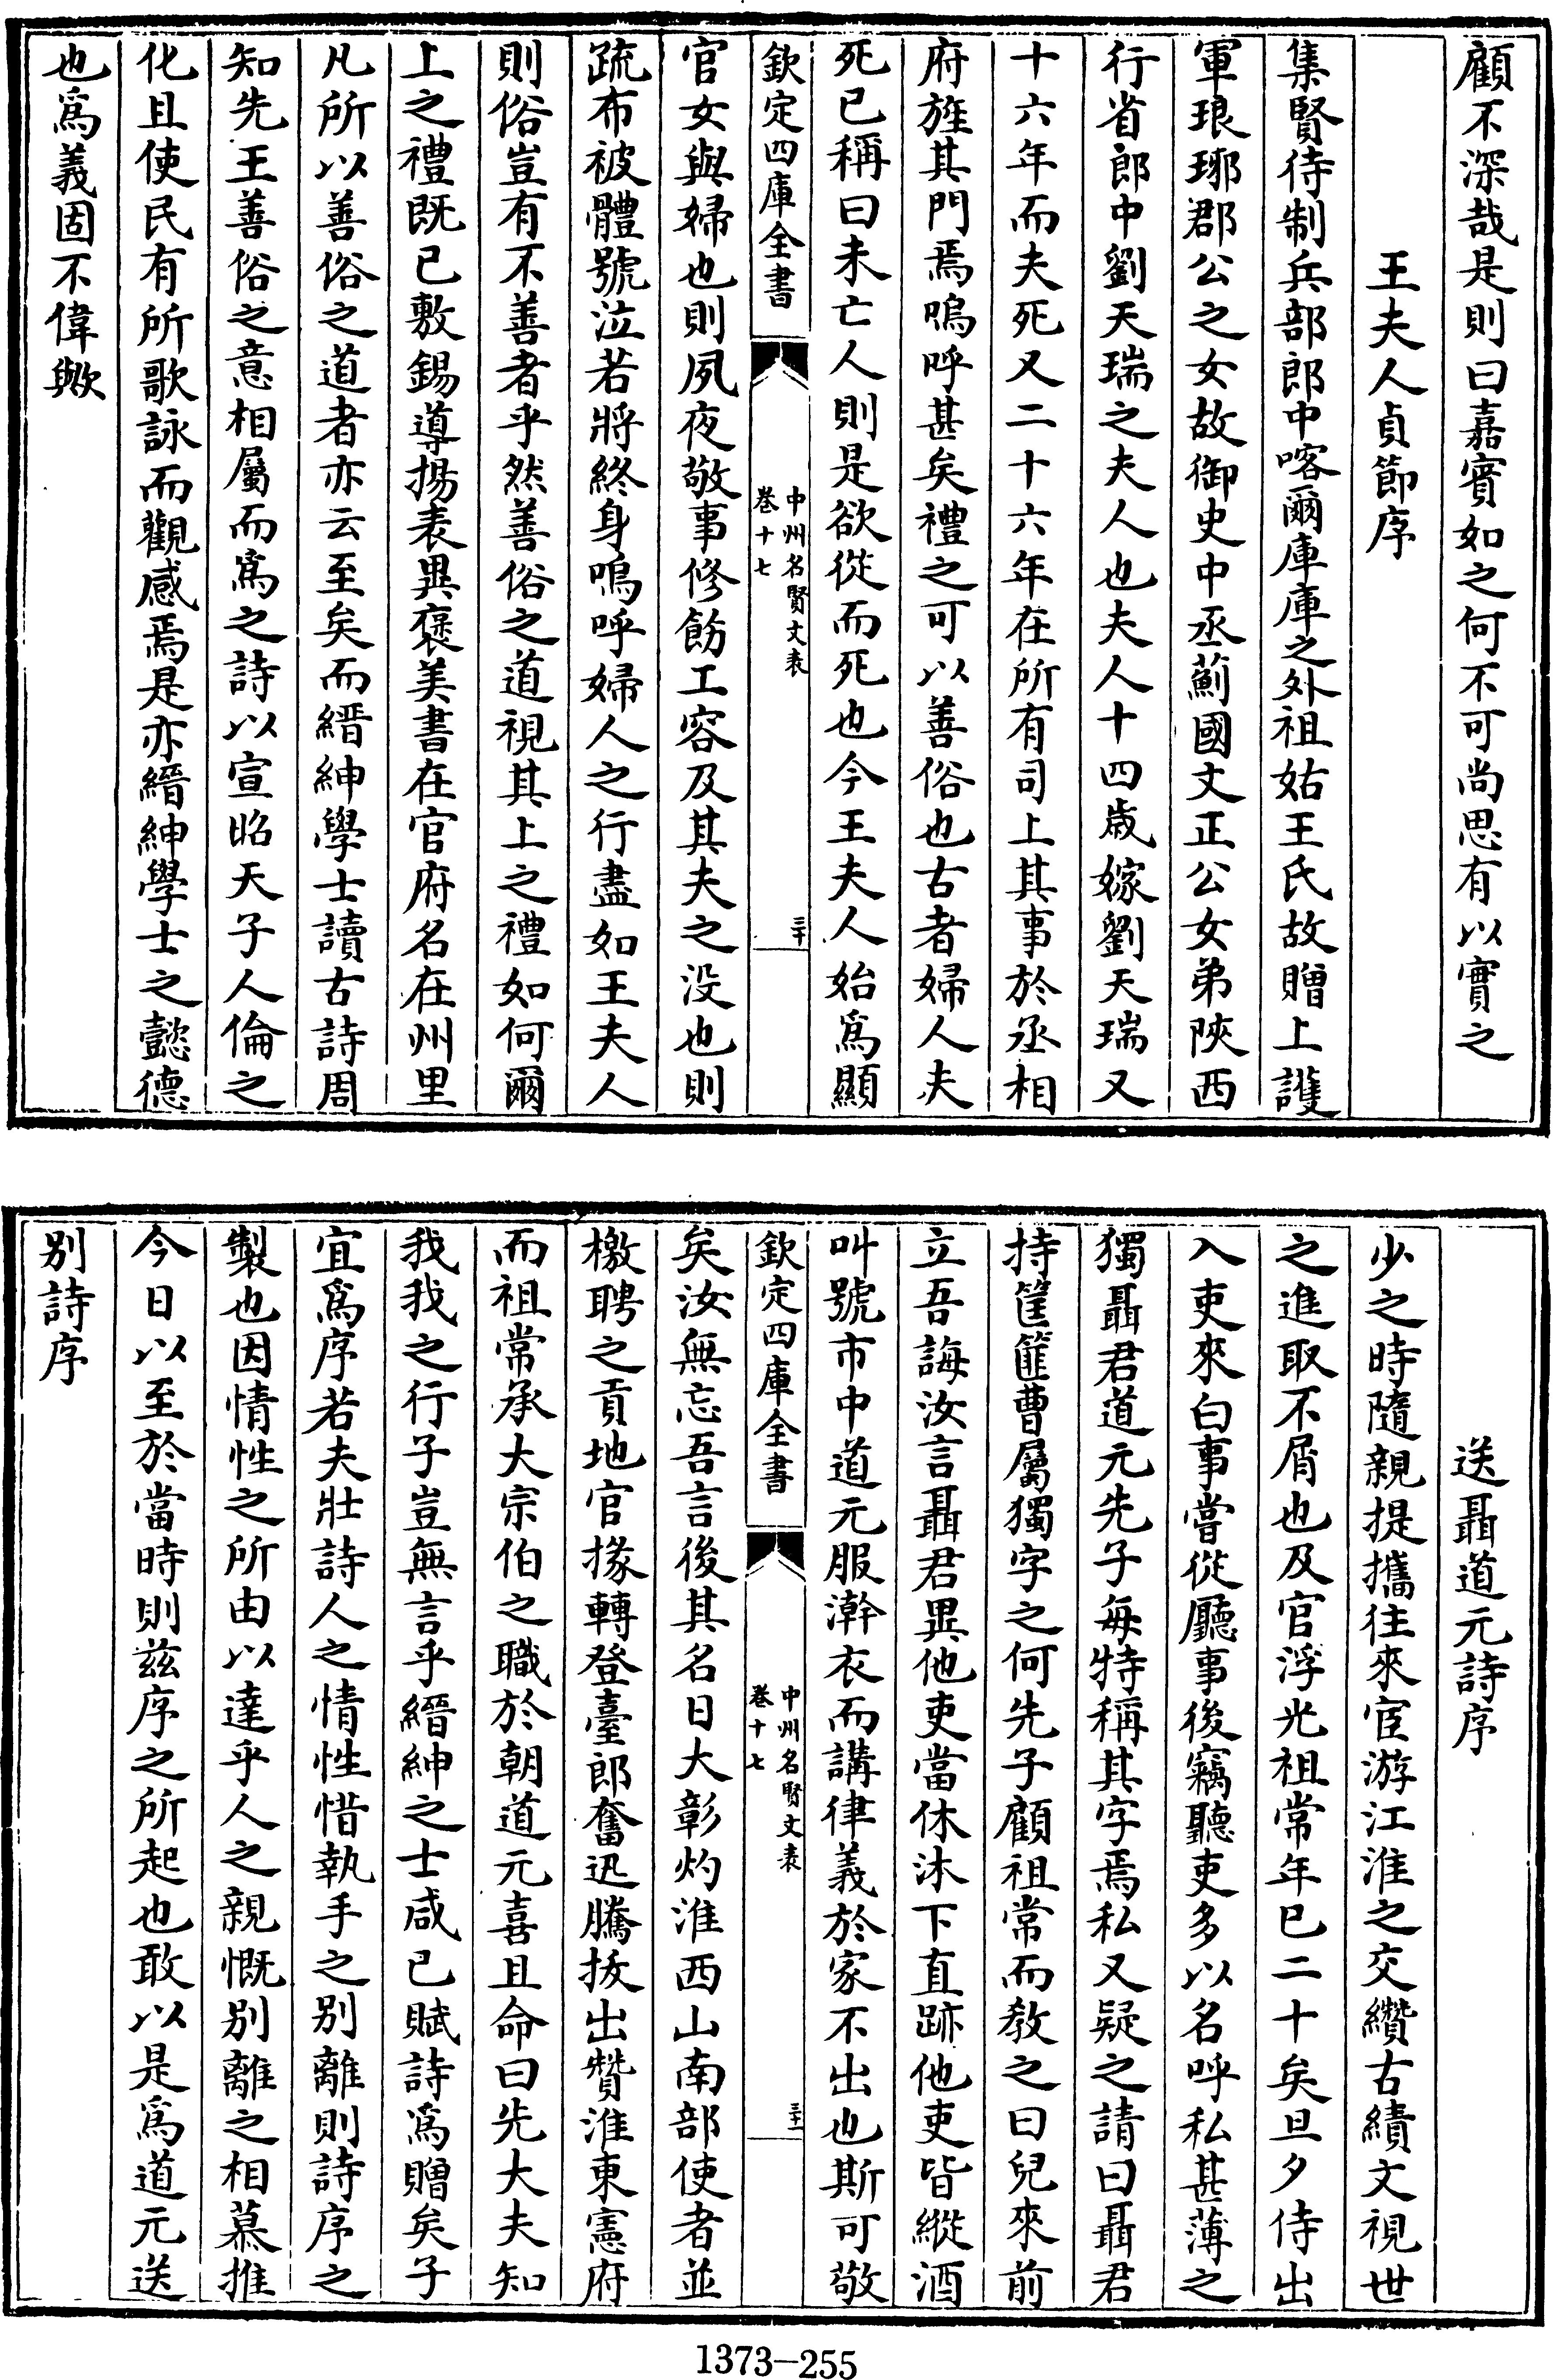 顧不深哉是則曰嘉賓如之何不可尚思有以實之
王夫人貞節序
集賢待制兵部郎中喀爾庫庫之外祖姑王氏故贈上護
軍琅琊郡公之女故御史中丞薊國文正公女弟陝西
行省郎中劉天瑞之夫人也夫人十四歳嫁劉天瑞又
十六年而夫死又二十六年在所有司上其事於丞相
府旌其門焉嗚呼甚矣禮之可以善俗也古者婦人夫
死已稱曰未亡人則是欲從而死也今王夫人始爲顯
欽定四庫全書
中州名賢文表
卷十七
三十
官女與婦也則夙夜敬事修飭工容及其夫之没也則
疏布被體號泣若將終身嗚呼婦人之行盡如王夫人
則俗豈有不善者乎然善俗之道視其上之禮如何爾
上之禮既已敷錫導揚表異褒美書在官府名在州里
凡所以善俗之道者亦云至矣而縉紳學士讀古詩周
知先王善俗之意相屬而爲之詩以宣昭天子人倫之
化且使民有所歌詠而觀感焉是亦縉紳學士之懿德
也爲義固不偉歟
送聶道元詩序
少之時隨親提攜往來宦游江淮之交纘古績文視世
之進取不屑也及官浮光祖常年巳二十矣旦夕侍出
入吏來白事嘗從廳事後竊聽吏多以名呼私甚薄之
獨聶君道元先子每特稱其字焉私又疑之請曰聶君
持筐篚曹屬獨字之何先子顧祖常而教之曰兒來前
立吾誨汝言聶君異他吏當休沐下直跡他吏皆縱酒
叫號市中道元服澣衣而講律義於家不出也斯可敬
欽定四庫全書
中州名賢文表
卷十七
三十一
矣汝無忘吾言後其名日大彰灼淮西山南部使者並
檄聘之貢地官掾轉登臺郎奮迅騰拔出贊淮東憲府
而祖常承大宗伯之職於朝道元喜且命曰先大夫知
我我之行子豈無言乎縉紳之士咸已賦詩爲贈矣子
宜爲序若夫壯詩人之情性惜執手之別離則詩序之
製也因情性之所由以達乎人之親慨別離之相慕推
今日以至於當時則兹序之所起也敢以是爲道元送
別詩序
1373—255